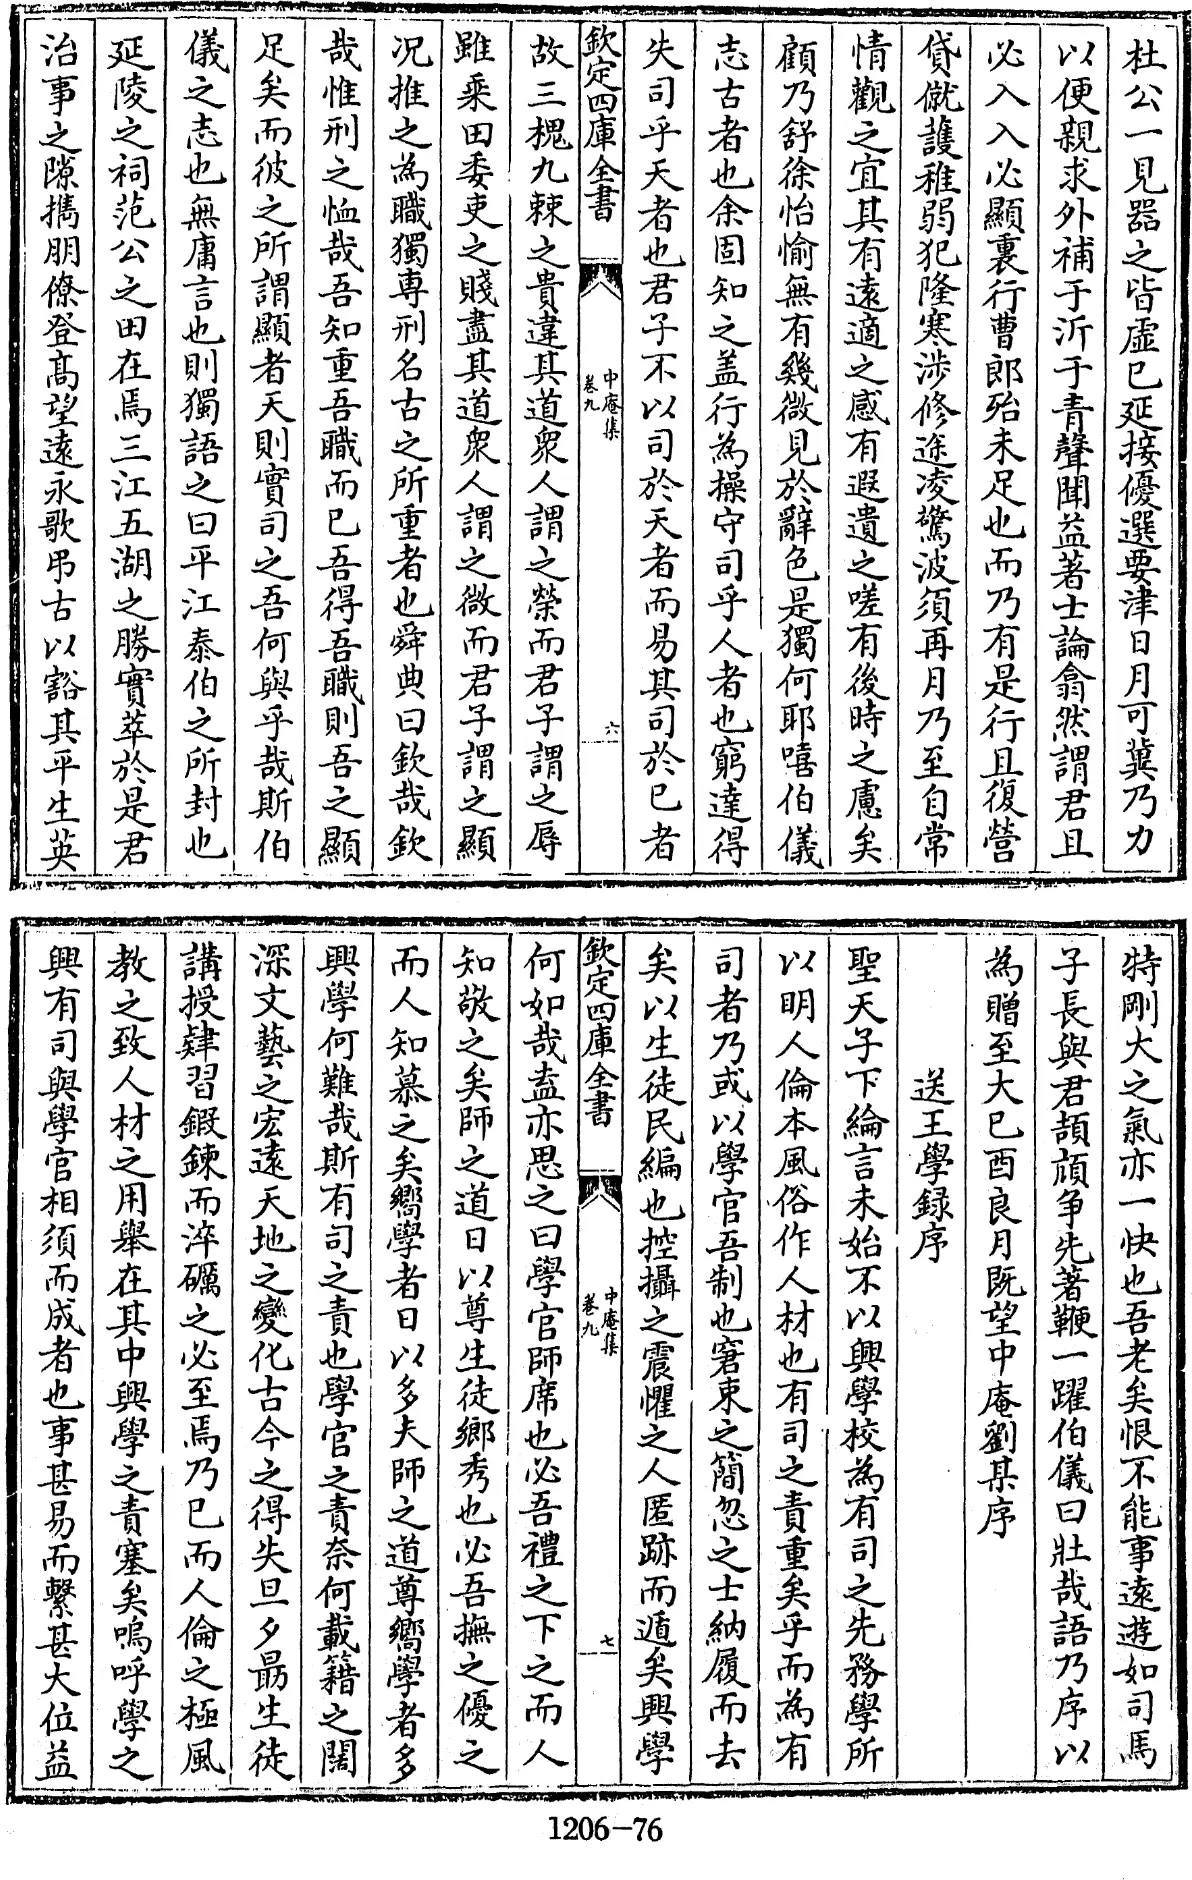 杜公一見器之皆虛已延接優選要津日月可冀乃力
以便親求外補于沂于青聲聞益著士論翕然謂君且
必入入必顯裏行曹郎殆未足也而乃有是行且復營
貸僦護稚弱犯隆寒涉修途凌驚波須再月乃至自常
情觀之宜其有遠適之感有遐遺之嗟有後時之慮矣
顧乃舒徐怡愉無有幾微見於辭色是獨何耶嘻伯儀
志古者也余固知之盖行為操守司乎人者也窮達得
失司乎天者也君子不以司於天者而易其司於已者
欽定四庫全書
中庵集
卷九
六
故三槐九棘之貴違其道衆人謂之榮而君子謂之辱
雖乘田委吏之賤盡其道衆人謂之微而君子謂之顯
况推之為職獨專刑名古之所重者也舜典曰欽哉欽
哉惟刑之恤哉吾知重吾職而已吾得吾職則吾之顯
足矣而彼之所謂顯者天則實司之吾何與乎哉斯伯
儀之志也無庸言也則獨語之曰平江泰伯之所封也
延陵之祠范公之田在焉三江五湖之勝實萃於是君
治事之隙擕朋僚登髙望遠永歌弔古以豁其平生英
特剛大之氣亦一快也吾老矣恨不能事遠遊如司馬
子長與君頡頏争先著鞭一躍伯儀曰壯哉語乃序以
為贈至大已酉良月既望中庵劉某序
送王學録序
聖天子下綸言未始不以興學校為有司之先務學所
以明人倫本風俗作人材也有司之責重矣乎而為有
司者乃或以學官吾制也窘束之簡忽之士納履而去
矣以生徒民編也控攝之震懼之人匿跡而遁矣興學
欽定四庫全書
中庵集
卷九
七
何如哉盍亦思之曰學官師席也必吾禮之下之而人
知敬之矣師之道日以尊生徒鄉秀也必吾撫之優之
而人知慕之矣嚮學者日以多夫師之道尊嚮學者多
興學何難哉斯有司之責也學官之責奈何載籍之闊
深文藝之宏遠天地之變化古今之得失旦夕勗生徒
講授肄習鍜鍊而淬礪之必至焉乃已而人倫之極風
教之致人材之用舉在其中興學之責塞矣嗚呼學之
興有司與學官相須而成者也事甚易而繫甚大位益
1206-76